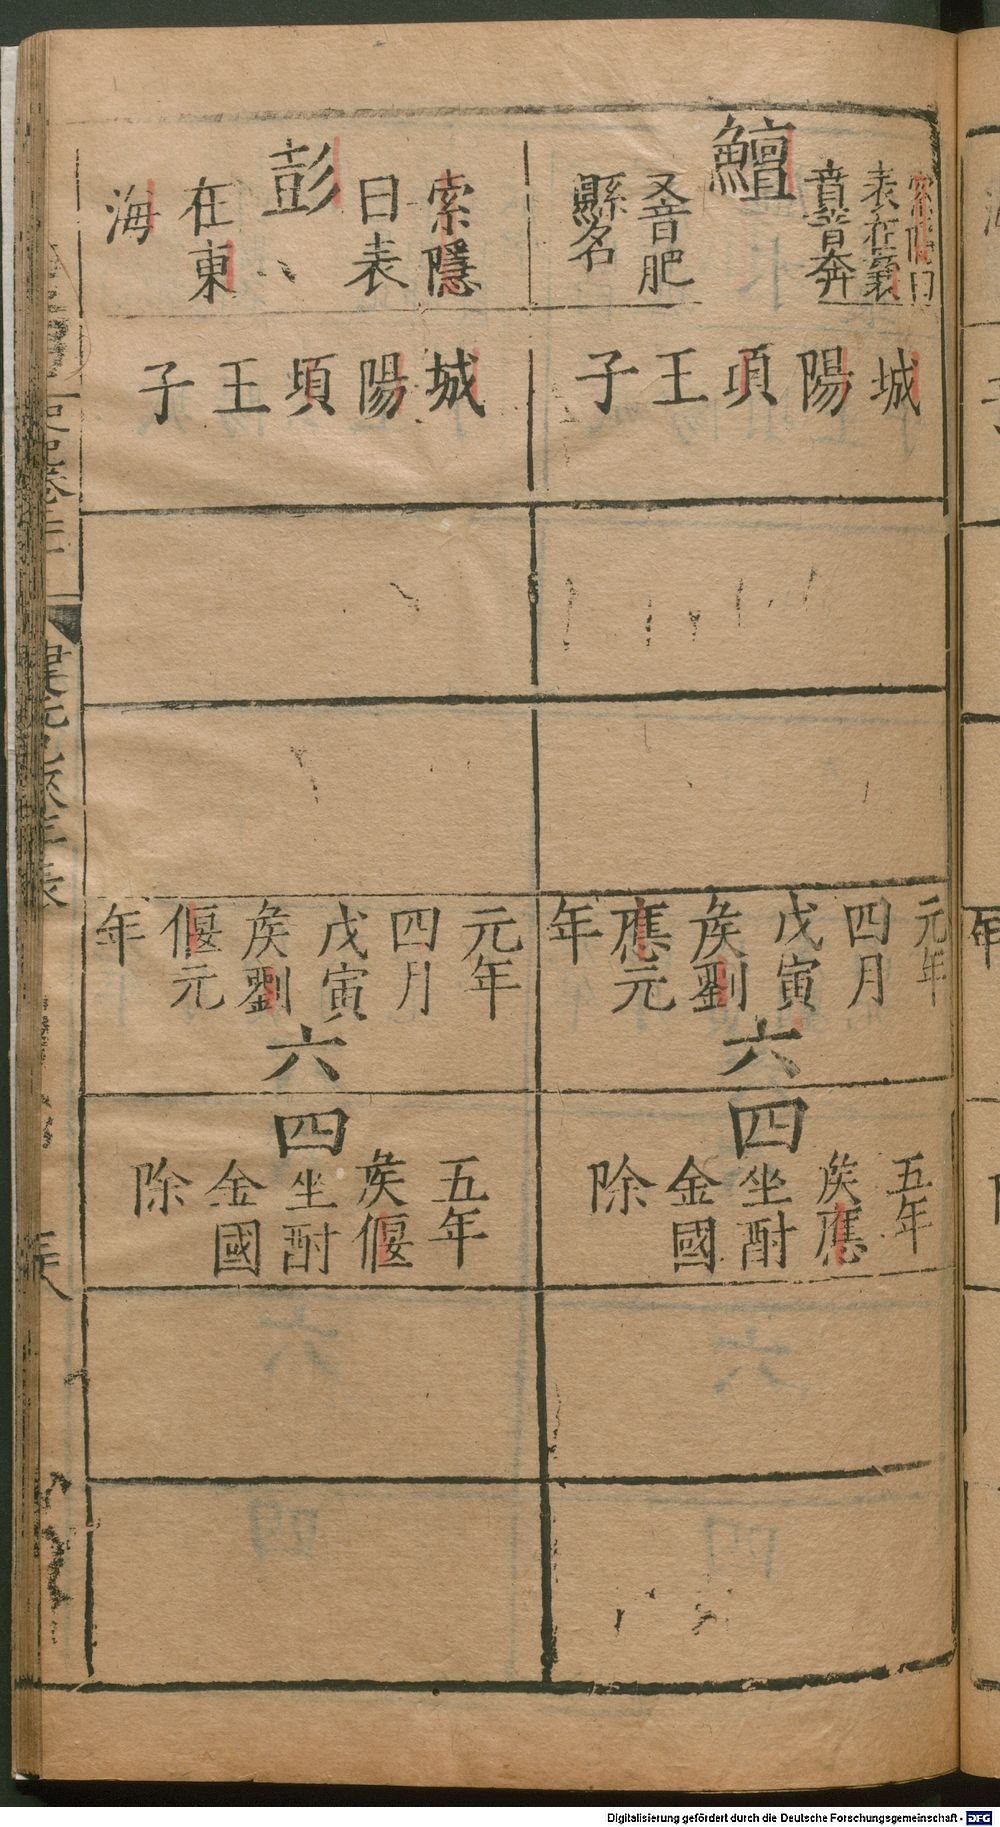 鱣
索隱曰
表在襄
賁音奔
又音肥
縣名
城
陽
項
王
子
元年
四月
戊寅
矦劉
應元
年
六
四
五年
矦應
坐酎
金國
除
彭
索隱
曰表
在東
海
城
陽
項
王
子
元年
四月
戊寅
矦劉
偃元
年
六
四
五年
矦偃
坐酎
金國
除
Digitalisierung gefördert durch die Deutsche Forschungsgemeinschaft - DFG